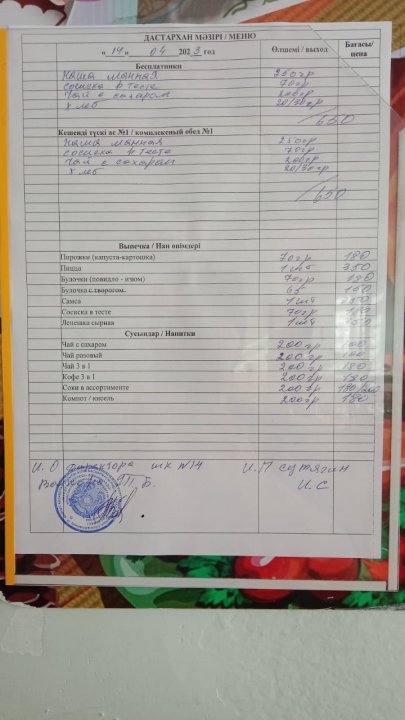 ДАСТАРХАН МӘЗІРІ / МЕНЮ
« 14 » 04 2023 год Өлшемі / выход Бағасы/ цена
Бесплатники
каша манная 250гр
сосиска в тесте 70гр
чай с сахаром 200гр
хлеб 20/30гр
/650
Кешенді түскі ас №1 / комплексный обед №1
каша манная 250гр
сосиска в тесте 70гр
чай с сахаром 200гр
хлеб 20/30гр
/650
Выпечка / Нан өнімдері
Пирожки (капуста-картошка) 70гр 180
Пицца 1шт 350
Булочки (повидло - изюм) 70гр 180
Булочка с творогом. 65 150
Самса 1шт
Сосиски в тесте 70гр 180
Лепешка сырная 1шт
Сусындар / Напитки
Чай с сахаром 200гр 100
Чай розовый 200гр 100
Чай 3 в 1 200гр 180
Кофе 3 в 1 200гр 180
Соки в ассортименте 200гр
Компот / кисель 200гр 180
И.О директора шк №14 И.П Сутягин
И.С